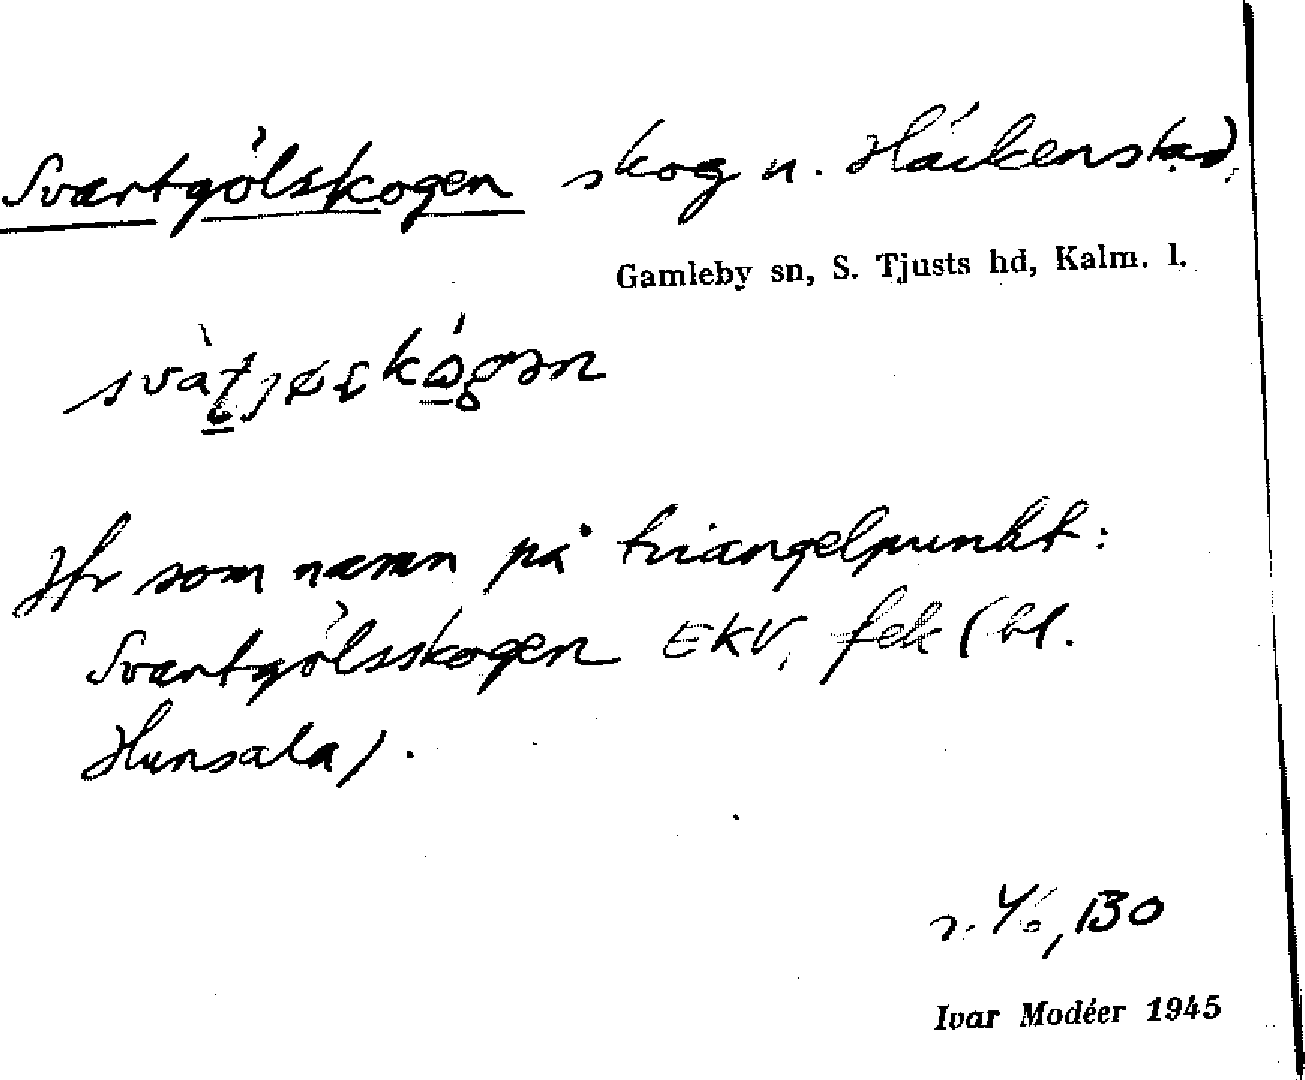 Svartgölskogen skog n. Häckenstad,
Gamleby sn, S. Tjusts hd, Kalm. l.
Jfr som namn på triangelpunkt:
Svartgölsskogen EKV, fek (bl.
Hunsala).
BO
Ivar Modéer 1945